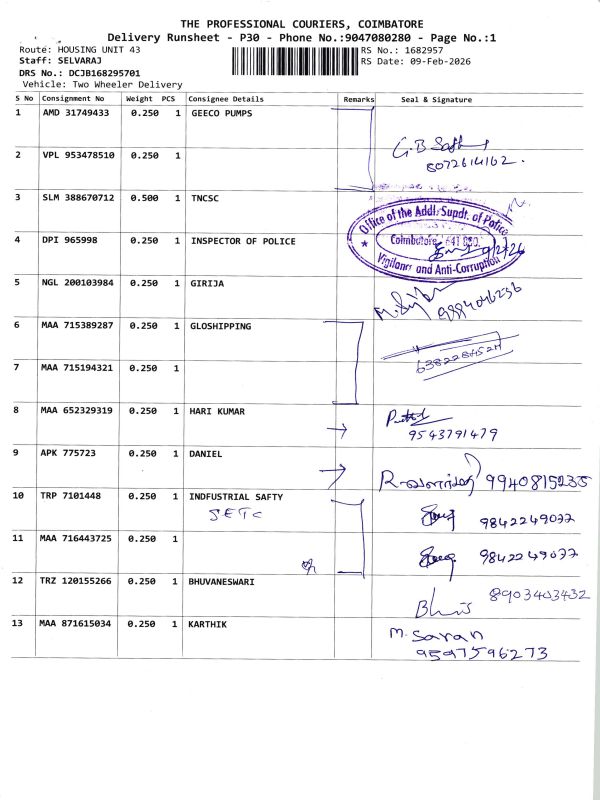 THE PROFESSIONAL COURIERS, COIMBATORE
Delivery Runsheet - P30 - Phone No.:9047080280 - Page No.:1
Route: HOUSING UNIT 43
RS No.: 1682957
Staff: SELVARAJ
RS Date: 09-Feb-2026
DRS No.: DCJB168295701
Vehicle: Two Wheeler Delivery
S No Consignment No Weight PCS Consignee Details Remarks Seal & Signature
1 AMD 31749433 0.250 1 GEECO PUMPS
8072614162.
2 VPL 953478510 0.250 1
3 SLM 388670712 0.500 1 TNCSC
Office of the Addl. Supdt. of Police
Coimbatore
Vigilance and Anti-Corruption
4 DPI 965998 0.250 1 INSPECTOR OF POLICE
9/2/26
5 NGL 200103984 0.250 1 GIRIJA
9884046236
6 MAA 715389287 0.250 1 GLOSHIPPING
7 MAA 715194321 0.250 1
8 MAA 652329319 0.250 1 HARI KUMAR
9543791479
9 APK 775723 0.250 1 DANIEL
9940815235
10 TRP 7101448 0.250 1 INDFUSTRIAL SAFTY
SETC
9842249077
11 MAA 716443725 0.250 1
9842249077
12 TRZ 120155266 0.250 1 BHUVANESWARI
8903403432
13 MAA 871615034 0.250 1 KARTHIK
M. Saran
9597596273